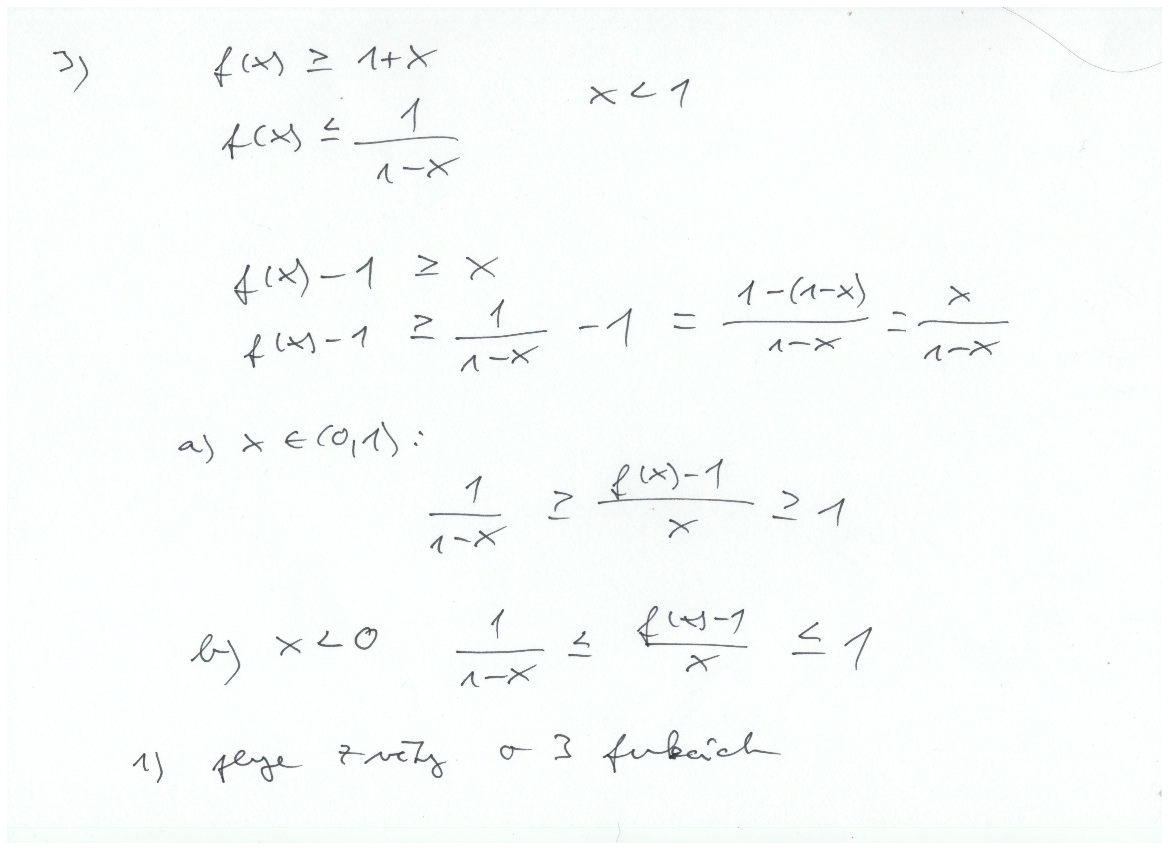 3) f(x) ≥ 1+x
x < 1
f(x) ≤ 1/(1-x)
f(x) - 1 ≥ x
f(x) - 1 ≥ 1/(1-x) - 1 = (1-(1-x))/(1-x) = x/(1-x)
a) x ∈ (0,1) :
1/(1-x) ≥ (f(x)-1)/x ≥ 1
b) x < 0 1/(1-x) ≤ (f(x)-1)/x ≤ 1
1) plyne z věty o 3 funkcích